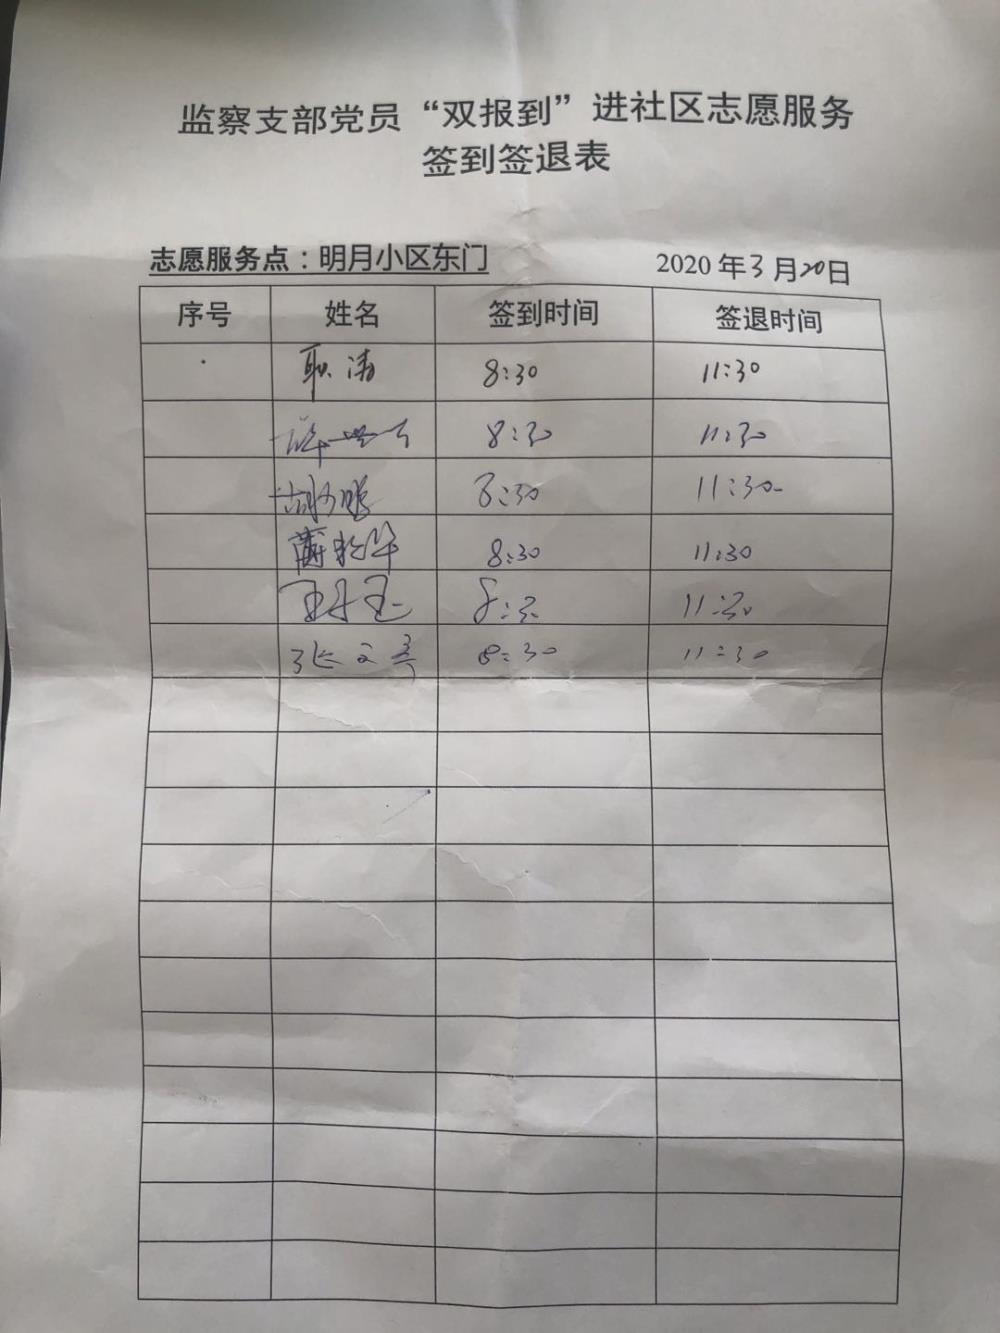 监察支部党员“双报到”进社区志愿服务
签到签退表
志愿服务点：明月小区东门 2020年3月20日
序号 姓名 签到时间 签退时间
耿涛 8:30 11:30
8:30 11:30
8:30 11:30
8:30 11:30
8:30 11:30
张文亮 8:30 11:30